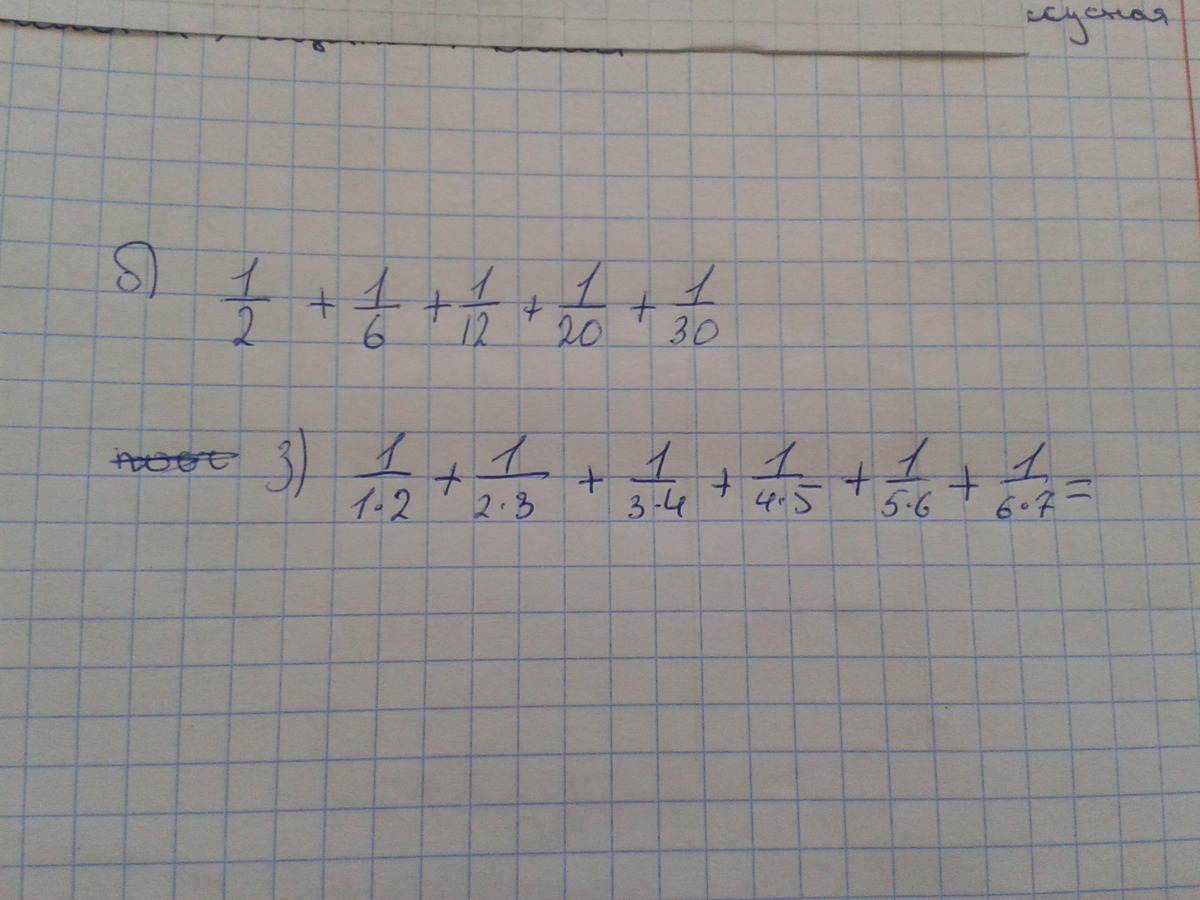 б) 1/2 + 1/6 + 1/12 + 1/20 + 1/30
3) 1/1·2 + 1/2·3 + 1/3·4 + 1/4·5 + 1/5·6 + 1/6·7 =